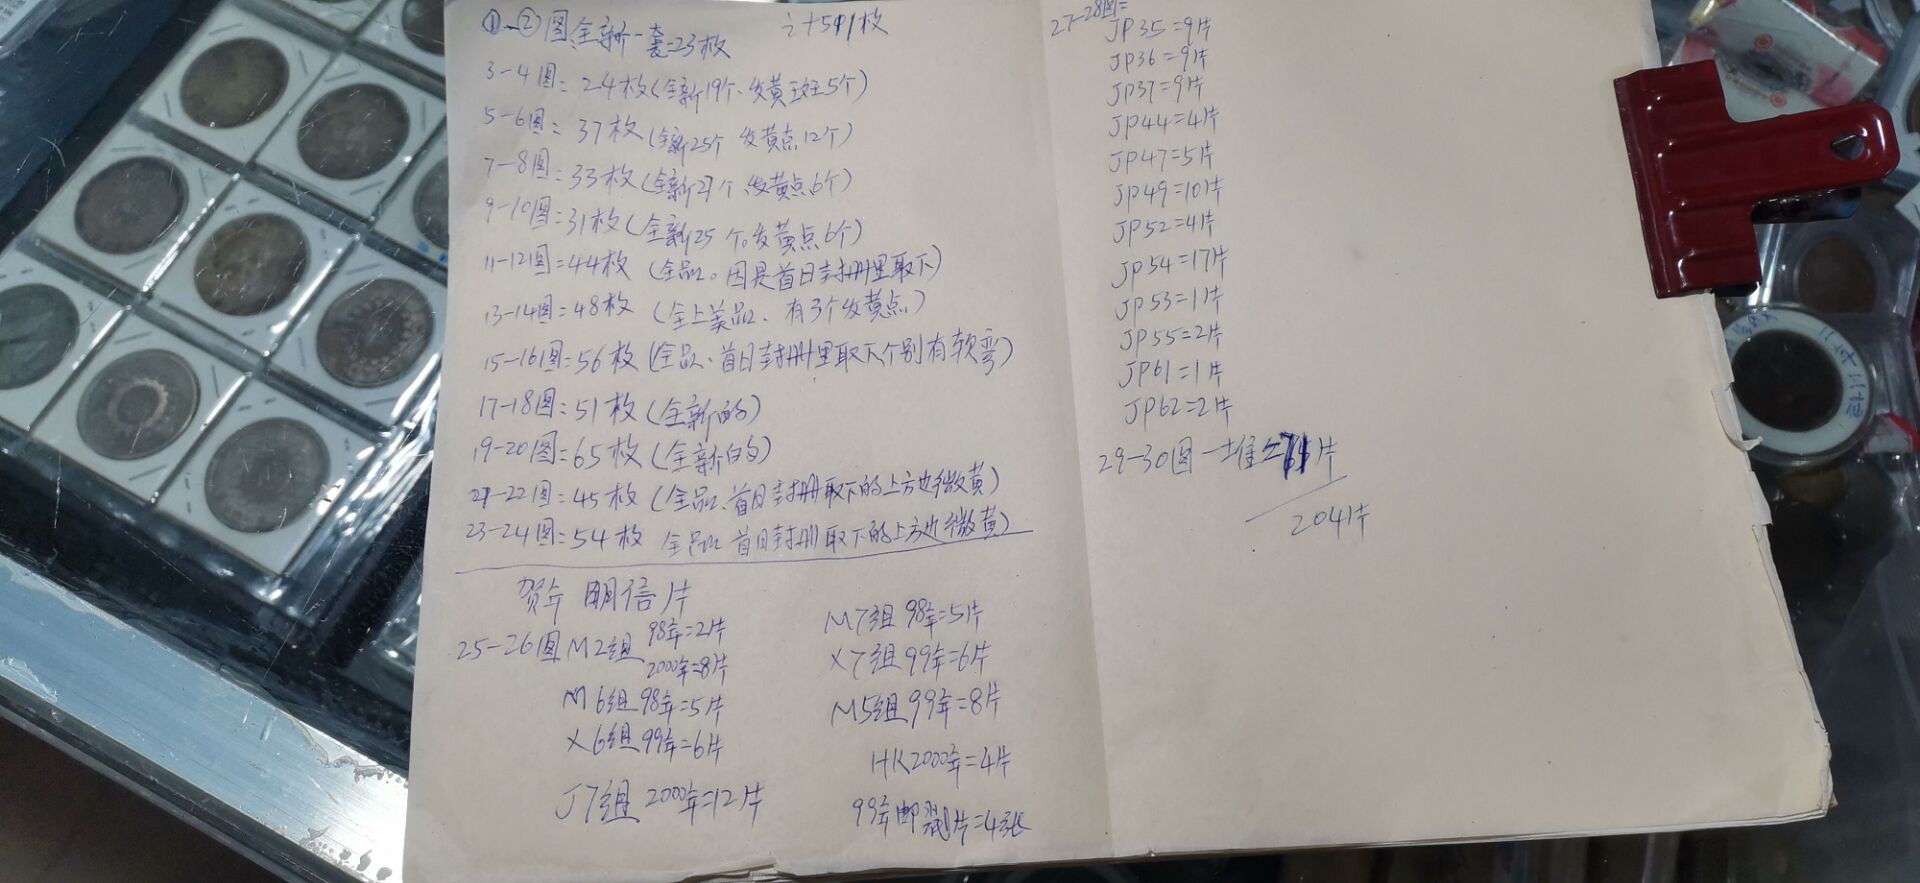 ①-②图全新一套=23枚 计511枚
3-4图=24枚(全新19个、发黄斑5个)
5-6图=37枚(全新25个 发黄点12个)
7-8图=33枚(全新27个、发黄点6个)
9-10图=31枚(全新25个。发黄点6个)
11-12图=44枚(全品。因是首日封册里取下)
13-14图=48枚(全上美品、有3个发黄点)
15-16图=56枚(全品、首日封册里取下个别有软弯)
17-18图=51枚(全新的)
19-20图=65枚(全新的)
21-22图=45枚(全品、首日封册取下的上方边微黄)
23-24图=54枚 全品 首日封册取下的上方边微黄)
贺年 明信片
25-26图M2组 98年=2片
2000年=8片
M6组98年=5片
X6组99年=6片
J7组 2000年=12片
M7组 98年=5片
X7组 99年=6片
M5组 99年=8片
HK2000年=4片
99年邮 片=4张
27-28图=
JP35=9片
JP36=9片
JP37=9片
JP44=4片
JP47=5片
JP49=10片
JP52=4片
JP54=17片
JP53=1片
JP55=2片
JP61=1片
JP62=2片
29-30图一堆= 片
204片